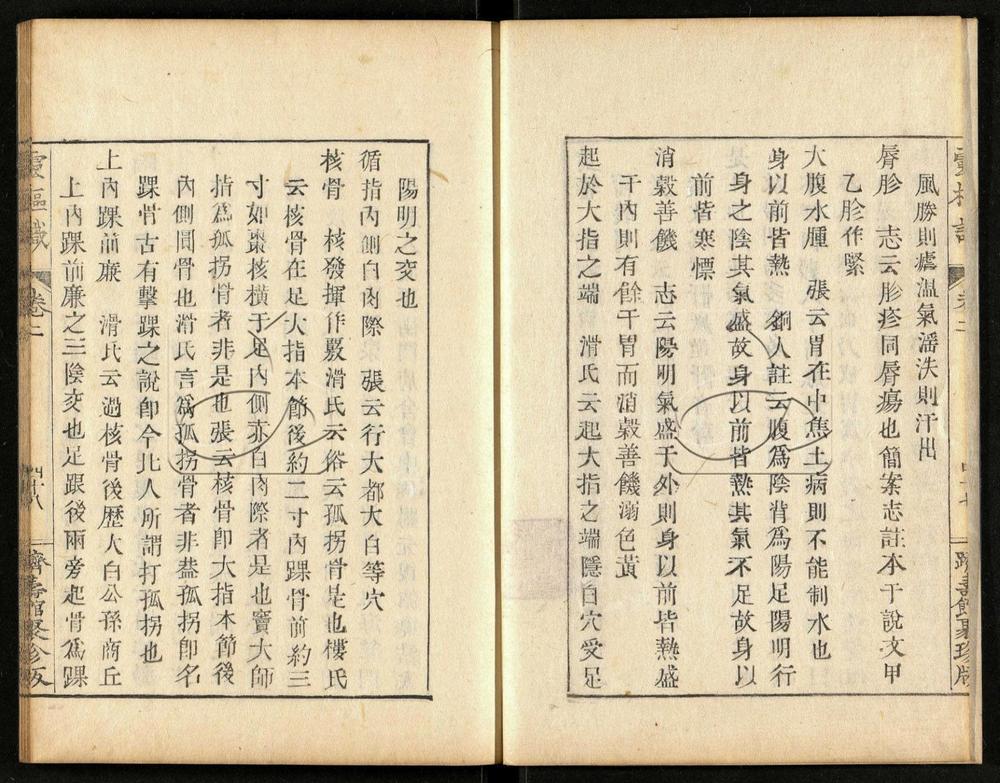 靈樞識
卷二
四十七
躋壽館聚珍版
風勝則虐溫氣潘泆則汗出
脣胗　志云胗疹同脣瘍也簡案志註本于說文甲
乙胗作緊
大腹水腫　張云胃在中焦土病則不能制水也
身以前皆熱　銅人註云腹爲陰背爲陽足陽明行
身之陰其氣盛故身以前皆熱其氣不足故身以
前皆寒慄
消穀善饑　志云陽明氣盛于外則身以前毕熱盛
于內則有餘于胃而消穀善饑溺色黃
起於大指之端　滑氏云起大指之端隱白穴受足
陽明之交也
循指內側白肉際　張云行大都太白等穴
核骨　核發揮作覈滑氏云俗云孤拐骨是也樓氏
云核骨在足大指本節後約二寸內踝骨前約三
寸如棗核橫于足內側赤白肉際者是也竇大師
指爲孤拐骨者非是也張云核骨即大指本節後
內側圓骨也滑氏言爲孤拐骨者非葢孤拐即名
踝骨古有擊踝之說即今北人所謂打孤拐也
上內踝前廉　滑氏云過核骨後歷大白公孫商丘
上內踝前廉之三陰交也足跟後兩旁起骨爲踝
靈樞識
卷二
四十八
躋壽館聚珍版